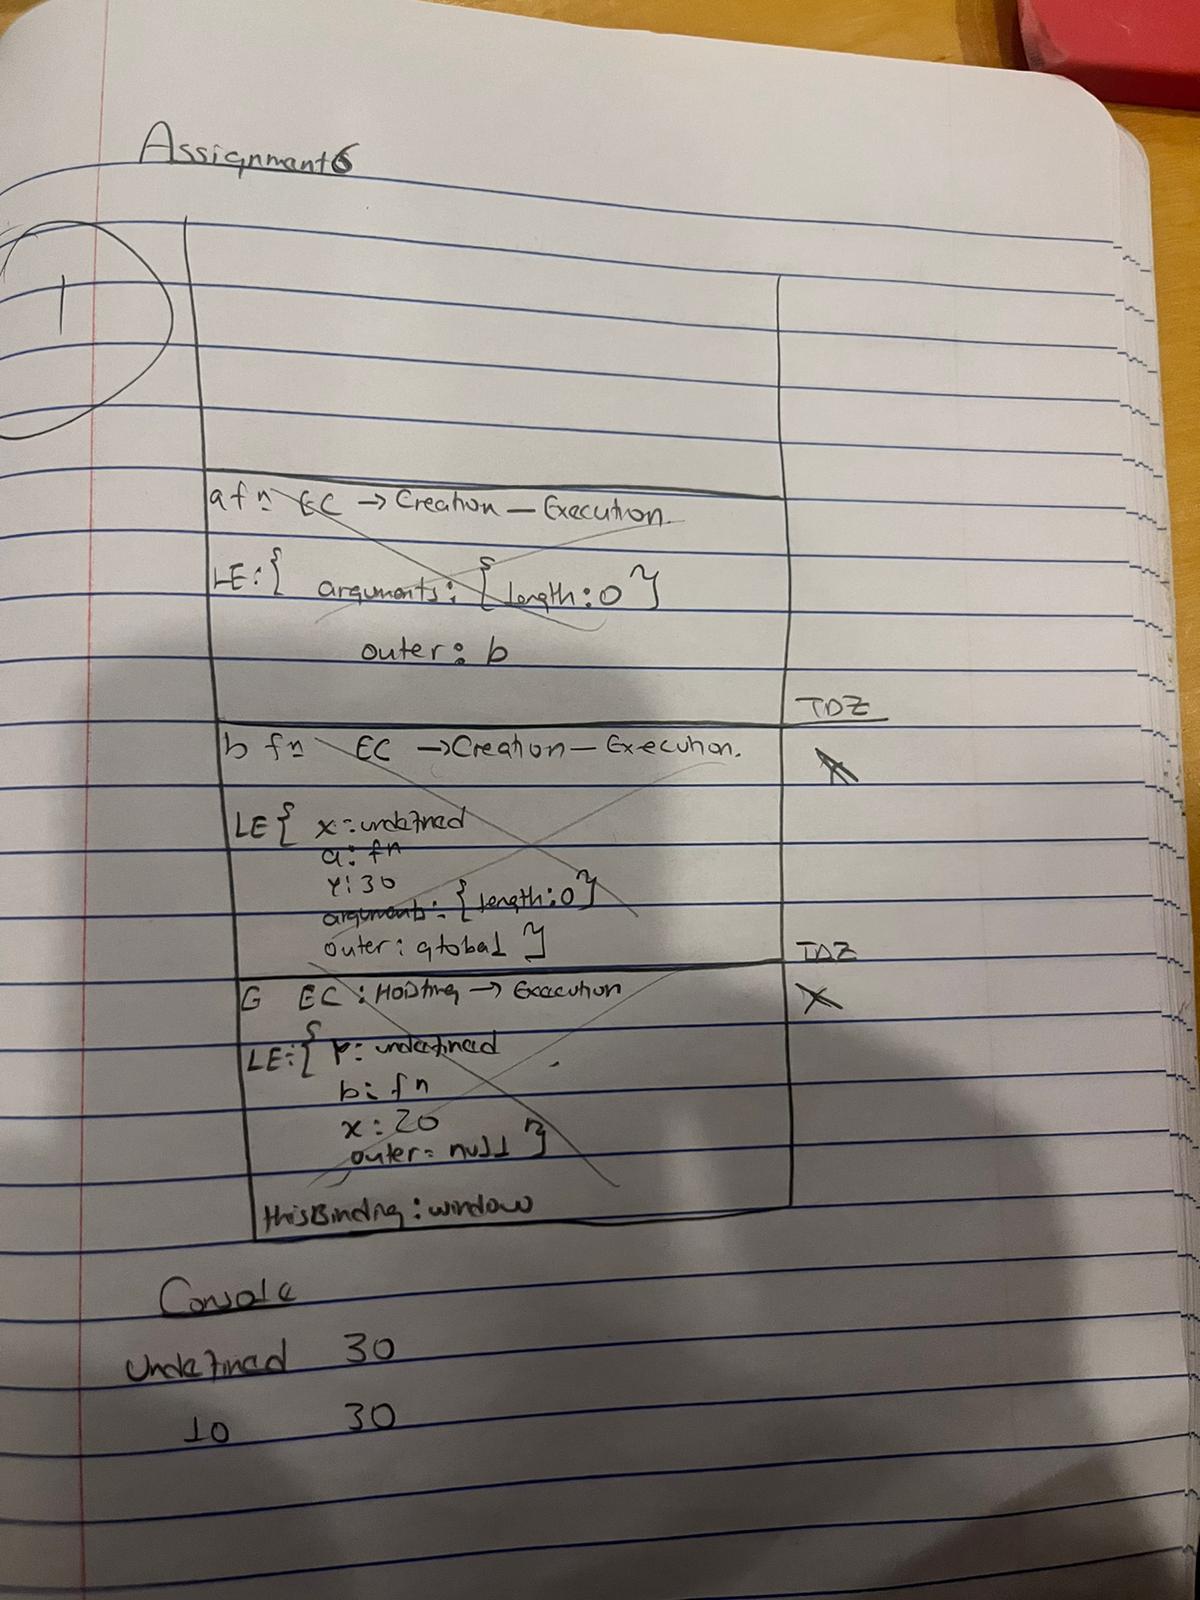 Assignment 6
1
a fn EC → Creation — Execution.
LE: { arguments: { length: 0 }
outer: b
TDZ
b fn EC → Creation — Execution.
LE { x: undefined
a: fn
Y: 30
arguments: { length: 0 }
outer: global }
TDZ
G EC: Hoisting → Execution
LE: { : undefined
b: fn
x: 20
outer: null }
thisBinding: window
Console
undefined 30
10 30